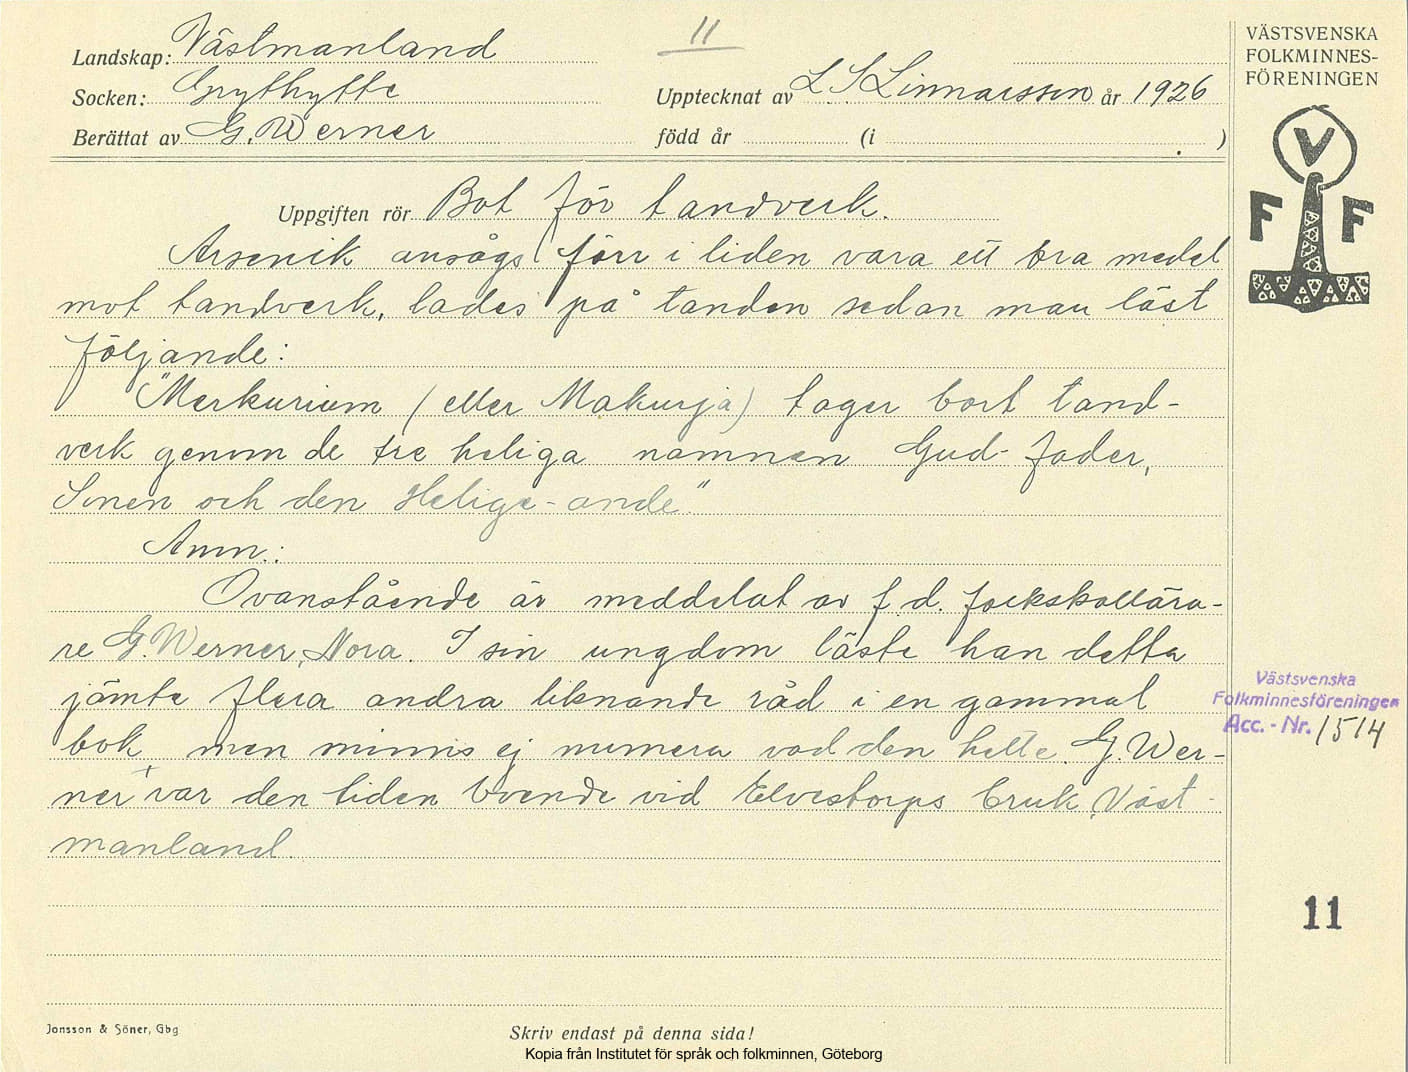 11
Landskap: Västmanland
Socken: Grythytte
Upptecknat av L S Linnarsson år 1926
Berättat av G. Werner
född år (i )
Uppgiften rör Bot för tandverk.
Arsenik ansågs förr i tiden vara ett bra medel
mot tandverk, lades på tanden sedan man läst
följande:
"Merkurium (eller Makurja) tager bort tand-
verk genom de tre heliga namnen Gud-fader,
Sonen och den Helige-ande".
Anm.:
Ovanstående är meddelat av f d. folkskollära-
re G. Werner, Nora. I sin ungdom läste han detta
jämte flera andra liknande råd i en gammal
bok, men minns ej numera vad den hette. G. Wer-
ner var den tiden boende vid Elvestorps bruk, Väst-
manland.
Jonsson & Söner, Gbg
Skriv endast på denna sida!
Kopia från Institutet för språk och folkminnen, Göteborg
VÄSTSVENSKA
FOLKMINNES-
FÖRENINGEN
V
F F
Västsvenska
Folkminnesföreningen
Acc. - Nr. 1514
11